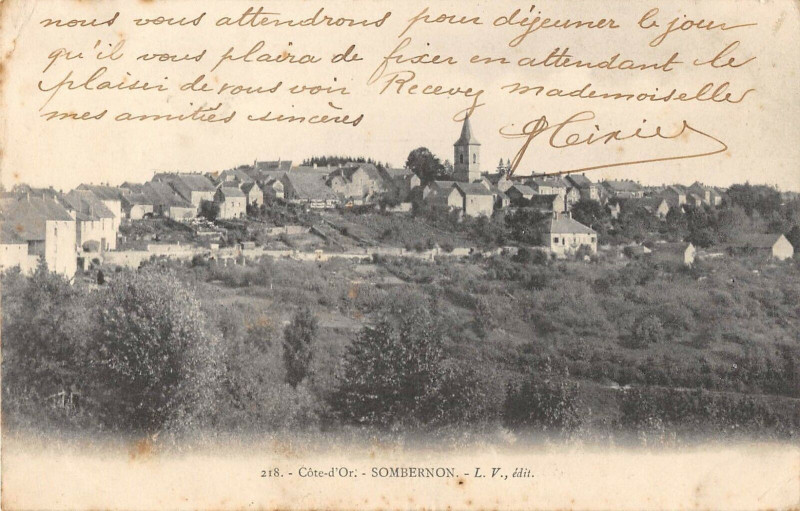 nous vous attendrons pour déjeuner le jour
qu'il vous plaira de fixer en attendant le
plaisir de vous voir Recevez mademoiselle
mes amitiés sincères
218. - Côte-d'Or. - SOMBERNON. - L. V., édit.